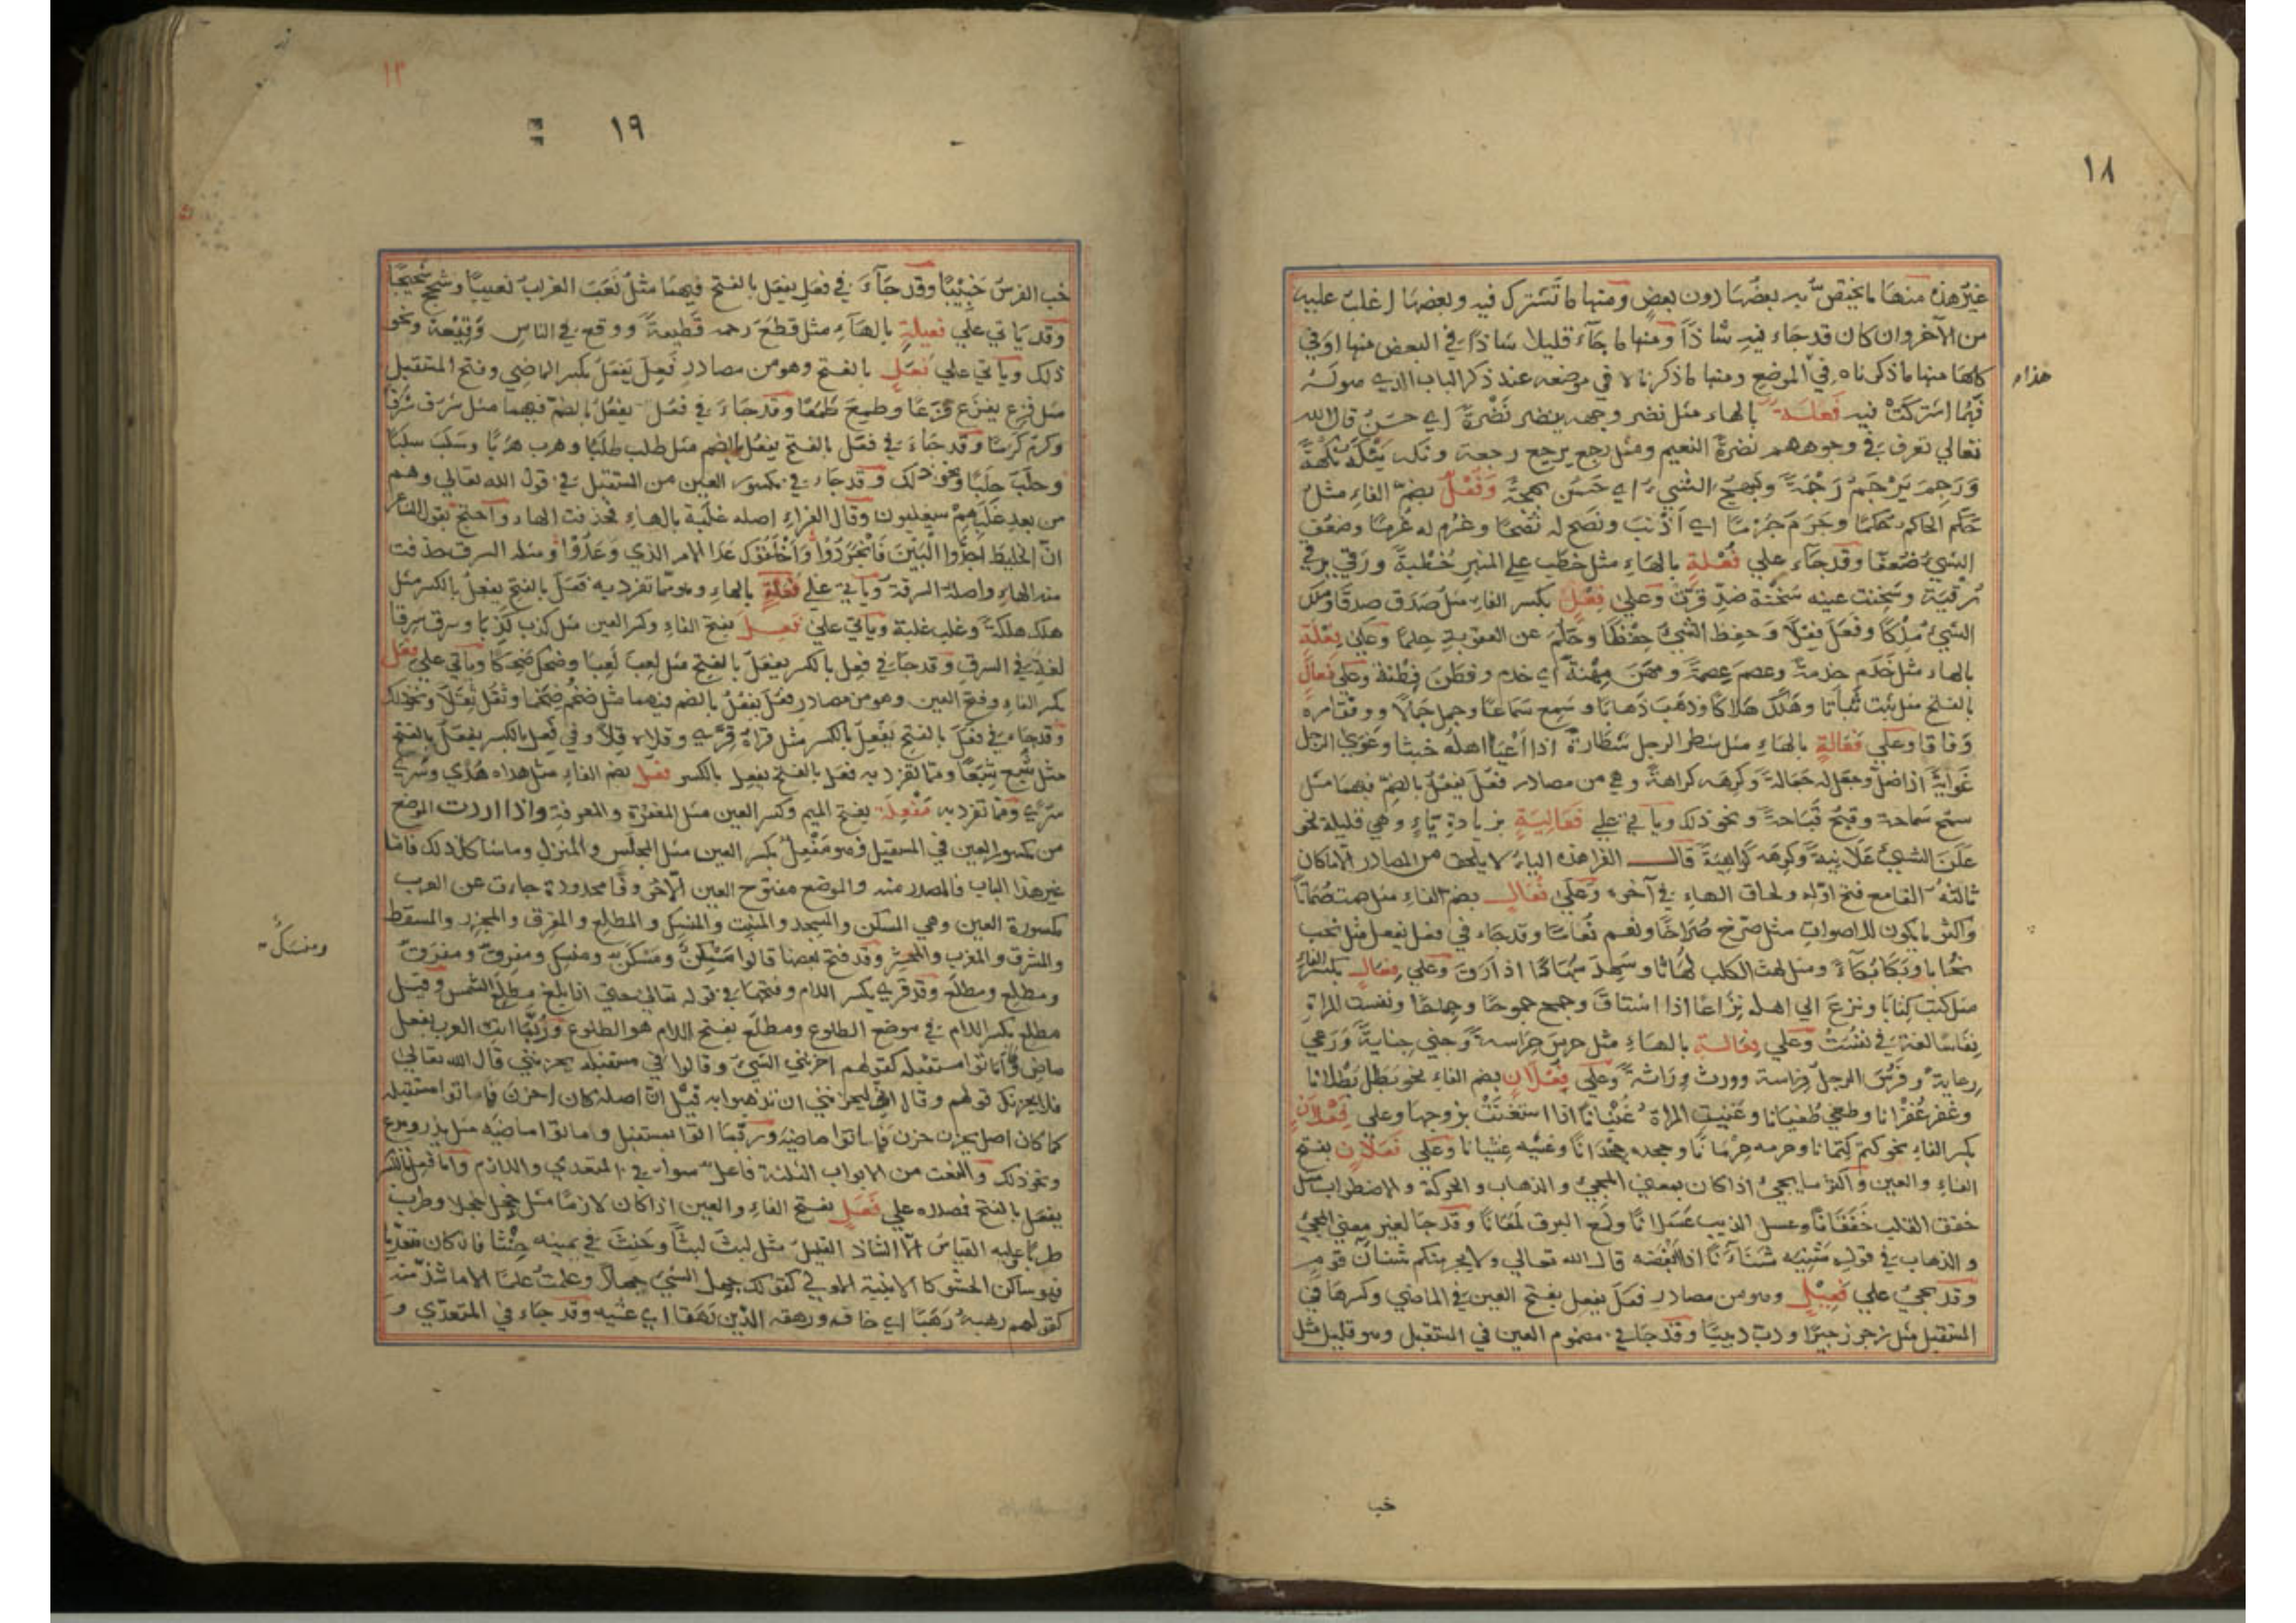 ١٨
غيرُ هذه منها ما يختصّ به بعضُها دون بعضٍ ومنها ما تشترك فيه وبعضها اغلب عليه
من الآخر وان كان قد جاء فيه شاذًّا ومنها ما جآء قليلا شاذًا في البعض منها او في
كلها منها ما ذكرناه في الموضع ومنها ما ذكرناه في موضعه عند ذكر الباب الذي هو له
هذاء
فمما اشتركت فيه فَعْلَة بالهاء مثل نضر وجهه ينضر نَضْرةً اي حسَنُ قال الله
تعالي تعرف في وجوههم نضرةَ النعيم ومثل رجع يرجع رجعة ونكه ينكَه نكْهةً
وَرَحِمَ يَرْحَمُ رَحْمَةً وبَهجَ الشيء اي حَسُن بهجةً وَفُعْلٌ بضم الفاءِ مثل
حَكم الحاكم حُكمًا وجَرَم جُرْمًا اي اَذْنبَ ونصَح له نُصْحًا وغرُم له غُرمًا وضعُف
الشيءُ ضُعفًا وقد جآء علي فُعْلةٍ بالهَاءِ مثل خطَب علي المنبرِ خُطْبةً ورَقي يرقي
رُقيَة وسَخِنت عينه سُخْنة ضدّ قرّت وَعلي فِعْلٍ بكسر الفاءِ مثل صَدَق صدقًا وملك
الشيءَ مِلْكًا وفَعَل فِعْلًا وَحفِظ الشيءَ حِفْظًا وحَلُمَ عن العقوبة حِلمًا وعَلي فِعْلَةٍ
بالهاء مثل خَدَم خِدمةً وعصم عِصمةً ومَهَن مِهْنةً اي خدم وفطَن فِطْنة وعلي فَعالٍ
بالفتح مثل ثبت ثَبَاتًا وهَلَك هَلاكًا وذهَبَ ذَهابًا وسَمِع سَمَاعًا وجمل جَمالًا ووفق امره
وَفاقا وعلي فَعَالةٍ بالهَاءِ مثل شطر الرجل شَطَارةً اذا اَعْيَا اهلَه خبثا وغَوَي الرجل
غَوَايةً اذا ضلّ وجعَل له جَعالةً وكرِهَه كراهةً وهي من مصادر فَعُلَ يفعُلُ بالضمّ فيهما مثل
سمُح سَماحة وقبُحُ قَبَاحةً ونحو ذلك ويأتي علي فَعَالِيَةٍ بزيادةِ يَاءٍ وهي قليلة نحو
عَلَن الشيءُ عَلَانيةً وكرِهَه كَرَاهيَةً قال الفرا هذه الياءُ لا يلحق من المصادر الا ما كان
ثالثهُ الفا مع فتح اوّله ولحاق الهاءِ في آخره وَعلي فُعَالٍ بضم الفاءِ مثل صمت صُمَاتًا
واكثر ما يكون للاصواتِ مثل صرَخ صُرَاخًا ونعس نُعَاسًا وقد جاء في فعل يفعل مثل نحب
نُحَابا وبَكَا بُكَاءً ومثل لهث الكلب لُهَاثا وسَهِدَ سُهَادًا اذا اَرِق وعلي فِعَالٍ بكسر الفاءِ
مثل كتب كِتَابًا ونزعَ الي اهله نِزَاعًا اذا اشتاقَ وجمح جموحًا وجِمَاحًا ونفست المراة
نِفاسًا لغة في نفُسَتْ وعلي فِعَالةٍ بالهَاءِ مثل حرس حِرَاسةً وَجني جِنايةً وَرَعي
رِعايةً وفَرُسَ الرجلُ فراسة وورث وِرَاثةً وعلي فُعْلَانٍ بضم الفاءِ نحو بَطَل بُطْلانًا
وغفر غُفْرانا وطغي طُغيَانا وغَنِيتِ المراة غُنْيَانًا اذا استغنَتْ بزوجها وعلي فِعْلَانٍ
بكسر الفاءِ نحو كتم كِتمانًا وحرمه حِرْمَانًا وجحده جِحْدَانًا وغَشيه غِشْيانا وعلي فَعَلانٍ بفتح
الفاءِ والعين واكثر ما يجيءُ اذا كان بمعني المجيءِ والذهاب والحركة والاضطراب مثل
خفق القلب خَفَقَانًا وعسل الذيب عَسَلانًا ولَمَع البرق لَمَعَانًا وقد جا لغير معني المجيءِ
والذهاب في قولهِ شَنِئَه شَنَآءَنًا اذا اَبْغَضه قال الله تعالي ولا يجرمنكم شنئان قوم
وقد يجيءُ علي فَعِيلٍ وهو من مصادر فعَلَ يفعِل بفتح العين في الماضي وكسرها في
المستقبل مثل زحر زحيرًا ودبّ دبيبًا وقد جا في مضموم العين في المستقبل وهو قليل مثل
خب
١٩
١٢
خب الفرسُ خَبِيْبًا وقد جَآءَ في فعَل يفعَل بالفتح فيهمَا مثلُ نَعَبَ الغرابُ نعيبًا وشحج شَحيجًا
وَقد يَاتي علي فَعيلَةٍ بالهَآءِ مثل قطَعَ رَحمه قَطيعةً ووقع في الناس وَقِيْعة ونحو
ذلك ويأتي علي فَعَلٍ بالفتح وهو من مصادر فَعِلَ يَفعَلُ بكسر الماضي وفتح المستقبل
مثل فزع يفزَع فَزَعًا وطمِعَ طَمَعًا وقد جَاءَ في فَعُلَ يفعُلُ بالضمّ فيهما مثل شرُف شَرَفًا
وكرُم كَرَمًا وقد جَاءَ في فعَل بالفتح يفعُل بالضم مثل طلب طلَبًا وهرب هرَبًا وسَلَبَ سلَبًا
وحلَبَ حلَبًا ونحو ذلك وقد جَاء في مكسور العين من المستقبل في قول الله تعالي وهم
من بعدِ غَلَبِهِمْ سيغلبون وقال الفراءِ اصله غلَبة بالهاءِ فحذفت الهاء واحتج بقول الشاعر
انّ الخليطَ اجدُّوا الْبَيْنَ فَانجَرَدُوا وَاَخْلَفُوْكَ عِدَا الامر الذي وَعَدُوْا ومثله السرق حذفت
منه الهاءِ واصله السرقة ويأتي علي فَعَلَةٍ بالهاءِ وهو ممّا تفرد به فعَلَ بالفتح يفعِلُ بالكسر مثل
هلك هلَكةً وغلب غلبة وياتي علي فَعِلٍ بفتح الفاءِ وكسر العين مثل كذب كَذِبًا وسرق سَرِقًا
لغة في السرق وقد جا في فعِل بالكسر يفعَل بالفتح مثل لعِبَ لَعِبًا وضحك ضَحِكًا وياتي علي فِعَلٍ
بكسر الفاءِ وفتح العين وهو من مصادر فعُل يفعُلُ بالضم فيهما مثل ضخُم ضِخَمًا وثقُل ثِقَلًا ونحو ذلك
وقد جاء في فعَل بالفتح يَفعِل بالكسر مثل قراهُ قِرًي وقلاه قِلًا وفي فَعِل بالكسر يفعَل بالفتح
مثل شبع شِبَعًا ومما تفرد به فعَل بالفتح يفعِل بالكسر فُعَلٌ بضم الفاءِ مثل هداه هُدًي وسُري
سُرًي ومما تفرد به مَفْعِلَة بفتح الميم وكسر العين مثل المغفرة والمعرفة واذا اردت الموضع
من مكسور العين في المستقبل فهو مَفْعِلٌ بكسر العين مثل المجلِس والمنزِل وما شاكل ذلك فاما
غير هذا الباب فالمصدر منه والموضع مفتوح العين الّا احرفا محدودة جاءت عن العرب
مكسورة العين وهي المسكن والمسجد والمنبت والمنسك والمطلع والمفرق والمجزر والمسقط
والمشرق والمغرب والمحشر وقد فتح بعضها قالوا مَسْكِنٌ ومَسْكَنٌ ومنسِك ومفرِق ومفرَق
ومنسَكٌ
ومطلِع ومطلَع وقد قري بكسر اللام وفتحها في قوله تعالي حتي اذا بلغ مطلعَ الشمس وقيل
مطلع بكسر اللام في موضع الطلوع ومطلَع بفتح اللام هو الطلوع وَرُبَّمَا اتت العرب بفعل
ماضٍ وأماتوا مستقبله كقولهم احزنني الشيءُ وقالوا في مستقبله يحزنني قال الله تعالي
فلا يحزنك قولهم وقال اني ليحزنني ان تذهبوا به قيل انّ اصله كان احزن فاماتوا مستقبله
كما كان اصل يحزن حزن فاماتوا ماضيَه وربّمَا اتوا بمستقبل واماتوا ماضيَه مثل يذر ويدع
ونحو ذلك والنعت من الابواب الثلثة فاعلٌ سواء في المتعدي واللازم واما فعِل بالكسر
يفعَل بالفتح فمصدره علي فَعَلٍ بفتح الفاءِ والعين اذا كان لازمًا مثل خجل خجلا وطرب
طربًا عليه القياسُ الّا الشاذ القليلُ مثل لبثَ لبثًا وحَنِثَ في يمينه حِنْثا فان كان متعدّيا
فهو ساكن الحشو كالابنية الاُوَلي كقولك جهل الشيءَ جهلًا وعلمتُ علمًا الا ما شذّ منه
كقولهم رهبهُ رَهَبًا اي خافه ورهقه الدَّين رَهَقا اي غشيه وقد جاء في المتعدّي و